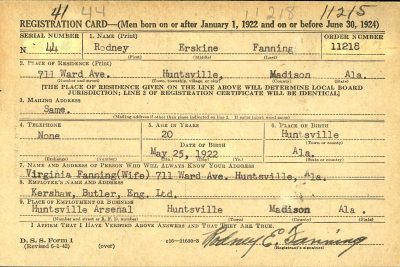 41 44 11218 11215
REGISTRATION CARD—(Men born on or after January 1, 1922 and on or before June 30, 1924)
SERIAL NUMBER 1. NAME (Print) ORDER NUMBER
N 44 Rodney Erskine Fanning 11218
(First) (Middle) (Last)
2. PLACE OF RESIDENCE (Print)
711 Ward Ave. Huntsville, Madison Ala.
(Number and street) (Town, township, village, or city) (County) (State)
[THE PLACE OF RESIDENCE GIVEN ON THE LINE ABOVE WILL DETERMINE LOCAL BOARD
JURISDICTION; LINE 2 OF REGISTRATION CERTIFICATE WILL BE IDENTICAL]
3. MAILING ADDRESS
Same.
[Mailing address if other than place indicated on line 2. If same insert word same]
4. TELEPHONE 5. AGE IN YEARS 6. PLACE OF BIRTH
None 20 Huntsville
DATE OF BIRTH (Town or county)
May 25, 1922 Ala.
(Exchange) (Number) (Mo.) (Day) (Yr.) (State or country)
7. NAME AND ADDRESS OF PERSON WHO WILL ALWAYS KNOW YOUR ADDRESS
Virginia Fanning(Wife) 711 Ward Ave. Huntsville, Ala.
8. EMPLOYER'S NAME AND ADDRESS
Kershaw, Butler, Eng. Ltd.
9. PLACE OF EMPLOYMENT OR BUSINESS
Huntsville Arsenal Huntsville Madison Ala .
(Number and street or R. F. D. number) (Town) (County) (State)
I AFFIRM THAT I HAVE VERIFIED ABOVE ANSWERS AND THAT THEY ARE TRUE.
D. S. S. Form 1
(Revised 6-9-42) (over) Rodney E. Fanning
(Registrant's signature)